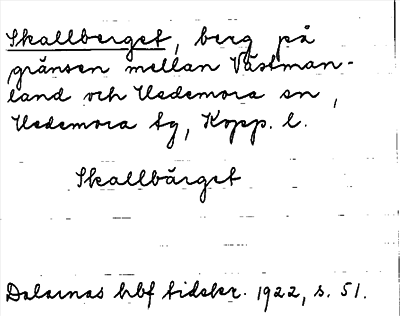 Skallberget, berg på
gränsen mellan Västman-
land och Hedemora sn,
Hedemora tg, Kopp. l.
Skallbärget
Dalarnas hbf tidskr. 1922, s. 51.